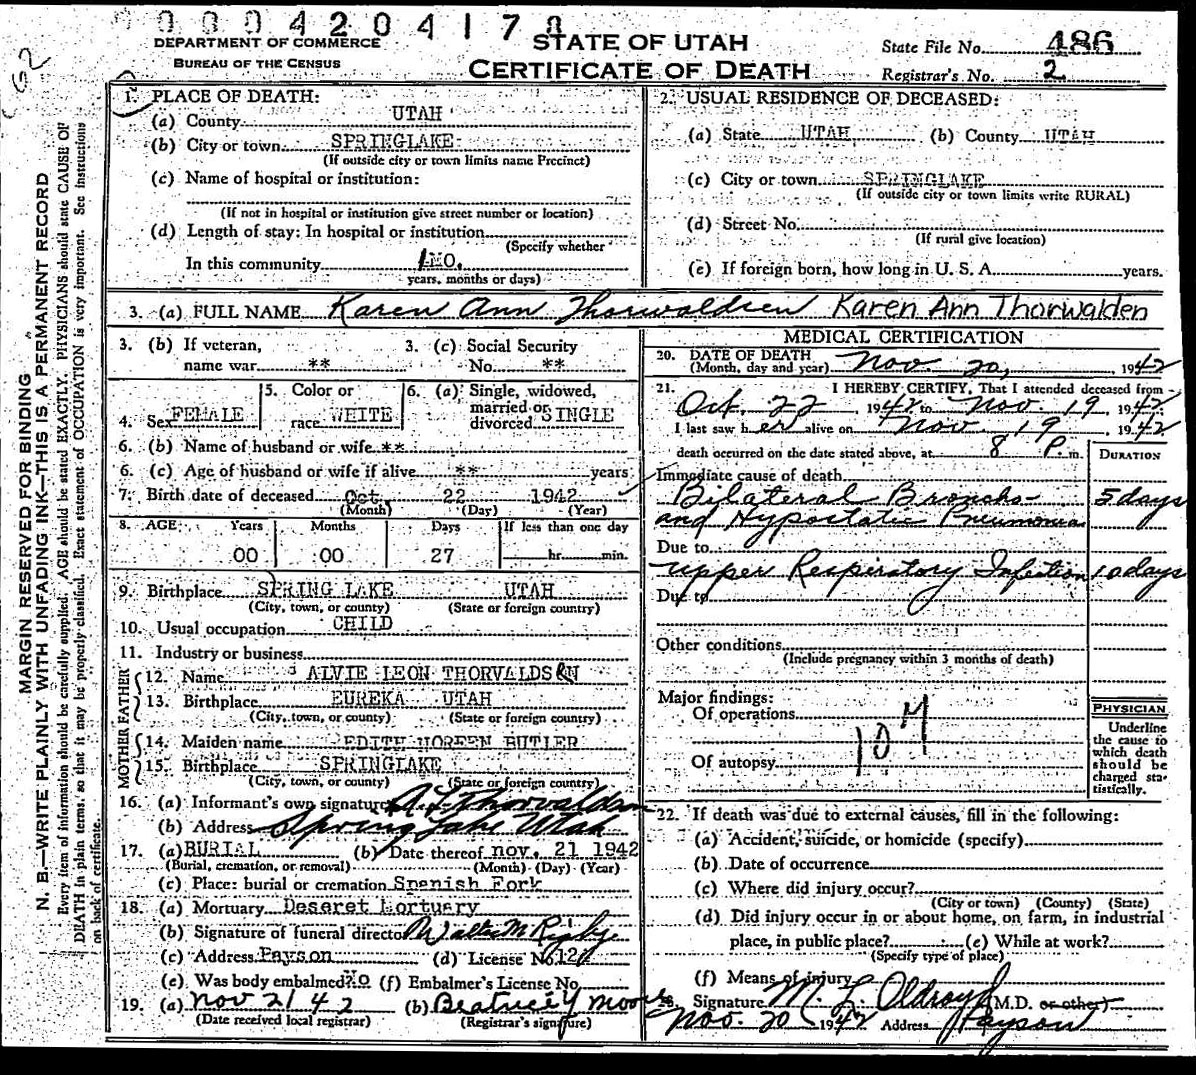 0000420417
DEPARTMENT OF COMMERCE
BUREAU OF THE CENSUS
STATE OF UTAH
CERTIFICATE OF DEATH
State File No. 486
Registrar's No. 2
MARGIN RESERVED FOR BINDING
N. B.—WRITE PLAINLY WITH UNFADING INK—THIS IS A PERMANENT RECORD
Every item of information should be carefully supplied. AGE should be stated EXACTLY. PHYSICIANS should state CAUSE OF
DEATH in plain terms, so that it may be properly classified. Exact statement of OCCUPATION is very important. See instructions
on back of certificate.
1. PLACE OF DEATH:
(a) County UTAH
(b) City or town SPRINGLAKE
(If outside city or town limits name Precinct)
(c) Name of hospital or institution:
(If not in hospital or institution give street number or location)
(d) Length of stay: In hospital or institution
(Specify whether
In this community 1 MO.
years, months or days)
2. USUAL RESIDENCE OF DECEASED:
(a) State UTAH (b) County UTAH
(c) City or town SPRINGLAKE
(If outside city or town limits write RURAL)
(d) Street No.
(If rural give location)
(e) If foreign born, how long in U. S. A. years.
3. (a) FULL NAME Karen Ann Thorwaldsen Karen Ann Thorwalden
3. (b) If veteran, name war ** 3. (c) Social Security No. **
4. Sex FEMALE 5. Color or race WHITE 6. (a) Single, widowed, married or divorced SINGLE
6. (b) Name of husband or wife **
6. (c) Age of husband or wife if alive ** years
7. Birth date of deceased Oct. 22 1942
(Month) (Day) (Year)
8. AGE: Years Months Days If less than one day
00 00 27 hr. min.
9. Birthplace SPRING LAKE UTAH
(City, town, or county) (State or foreign country)
10. Usual occupation CHILD
11. Industry or business
FATHER
12. Name ALVIE LEON THORVALDSEN
13. Birthplace EUREKA UTAH
(City, town, or county) (State or foreign country)
MOTHER
14. Maiden name EDITH NOREEN BUTLER
15. Birthplace SPRINGLAKE
(City, town, or county) (State or foreign country)
16. (a) Informant's own signature A. L. Thorvaldsen
(b) Address Spring Lake Utah
17. (a) BURIAL (b) Date thereof nov. 21 1942
(Burial, cremation, or removal) (Month) (Day) (Year)
(c) Place: burial or cremation Spanish Fork
18. (a) Mortuary Deseret Mortuary
(b) Signature of funeral director Walter M Rigby
(c) Address Payson (d) License No.
(e) Was body embalmed? No (f) Embalmer's License No.
19. (a) Nov 21 42 (b) Beatrice Y Moore
(Date received local registrar) (Registrar's signature)
MEDICAL CERTIFICATION
20. DATE OF DEATH Nov. 20, 1942
(Month, day and year)
21. I HEREBY CERTIFY, That I attended deceased from
Oct. 22, 1942 to Nov. 19, 1942,
I last saw her alive on Nov. 19 1942
death occurred on the date stated above, at 8 P. m.
DURATION
Immediate cause of death
Bilateral Broncho- 5 days
and Hypostatic Pneumonia
Due to
Upper Respiratory Infection 10 days
Due to
Other conditions
(Include pregnancy within 3 months of death)
Major findings:
Of operations
Of autopsy
PHYSICIAN
Underline
the cause to
which death
should be
charged sta-
tistically.
22. If death was due to external causes, fill in the following:
(a) Accident, suicide, or homicide (specify)
(b) Date of occurrence
(c) Where did injury occur?
(City or town) (County) (State)
(d) Did injury occur in or about home, on farm, in industrial
place, in public place? (e) While at work?
(Specify type of place)
(f) Means of injury
23. Signature M. L. Oldroyd (M.D. or other)
Nov. 20 1942 Address Payson